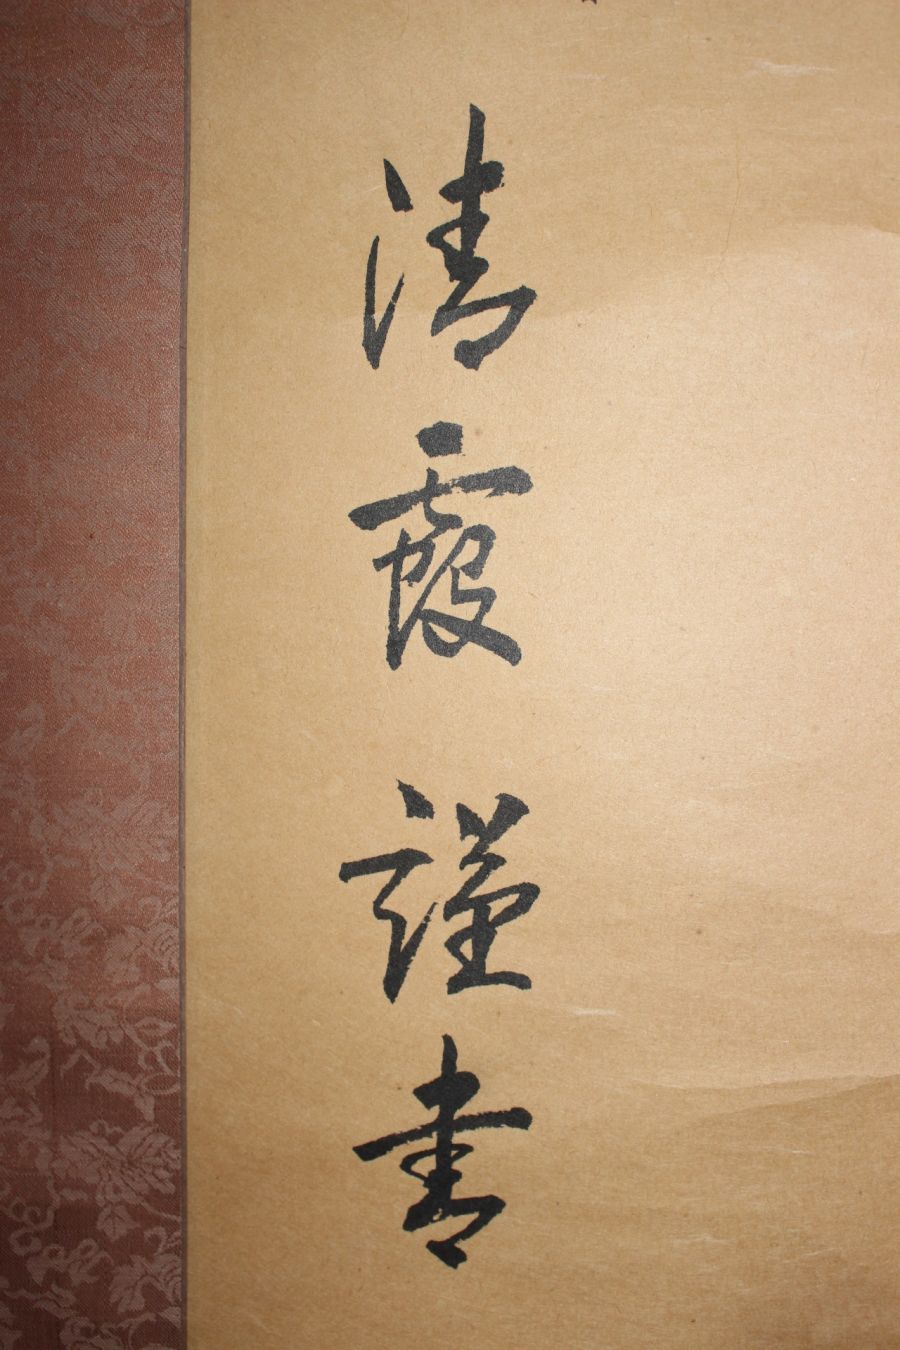 清霞謹書